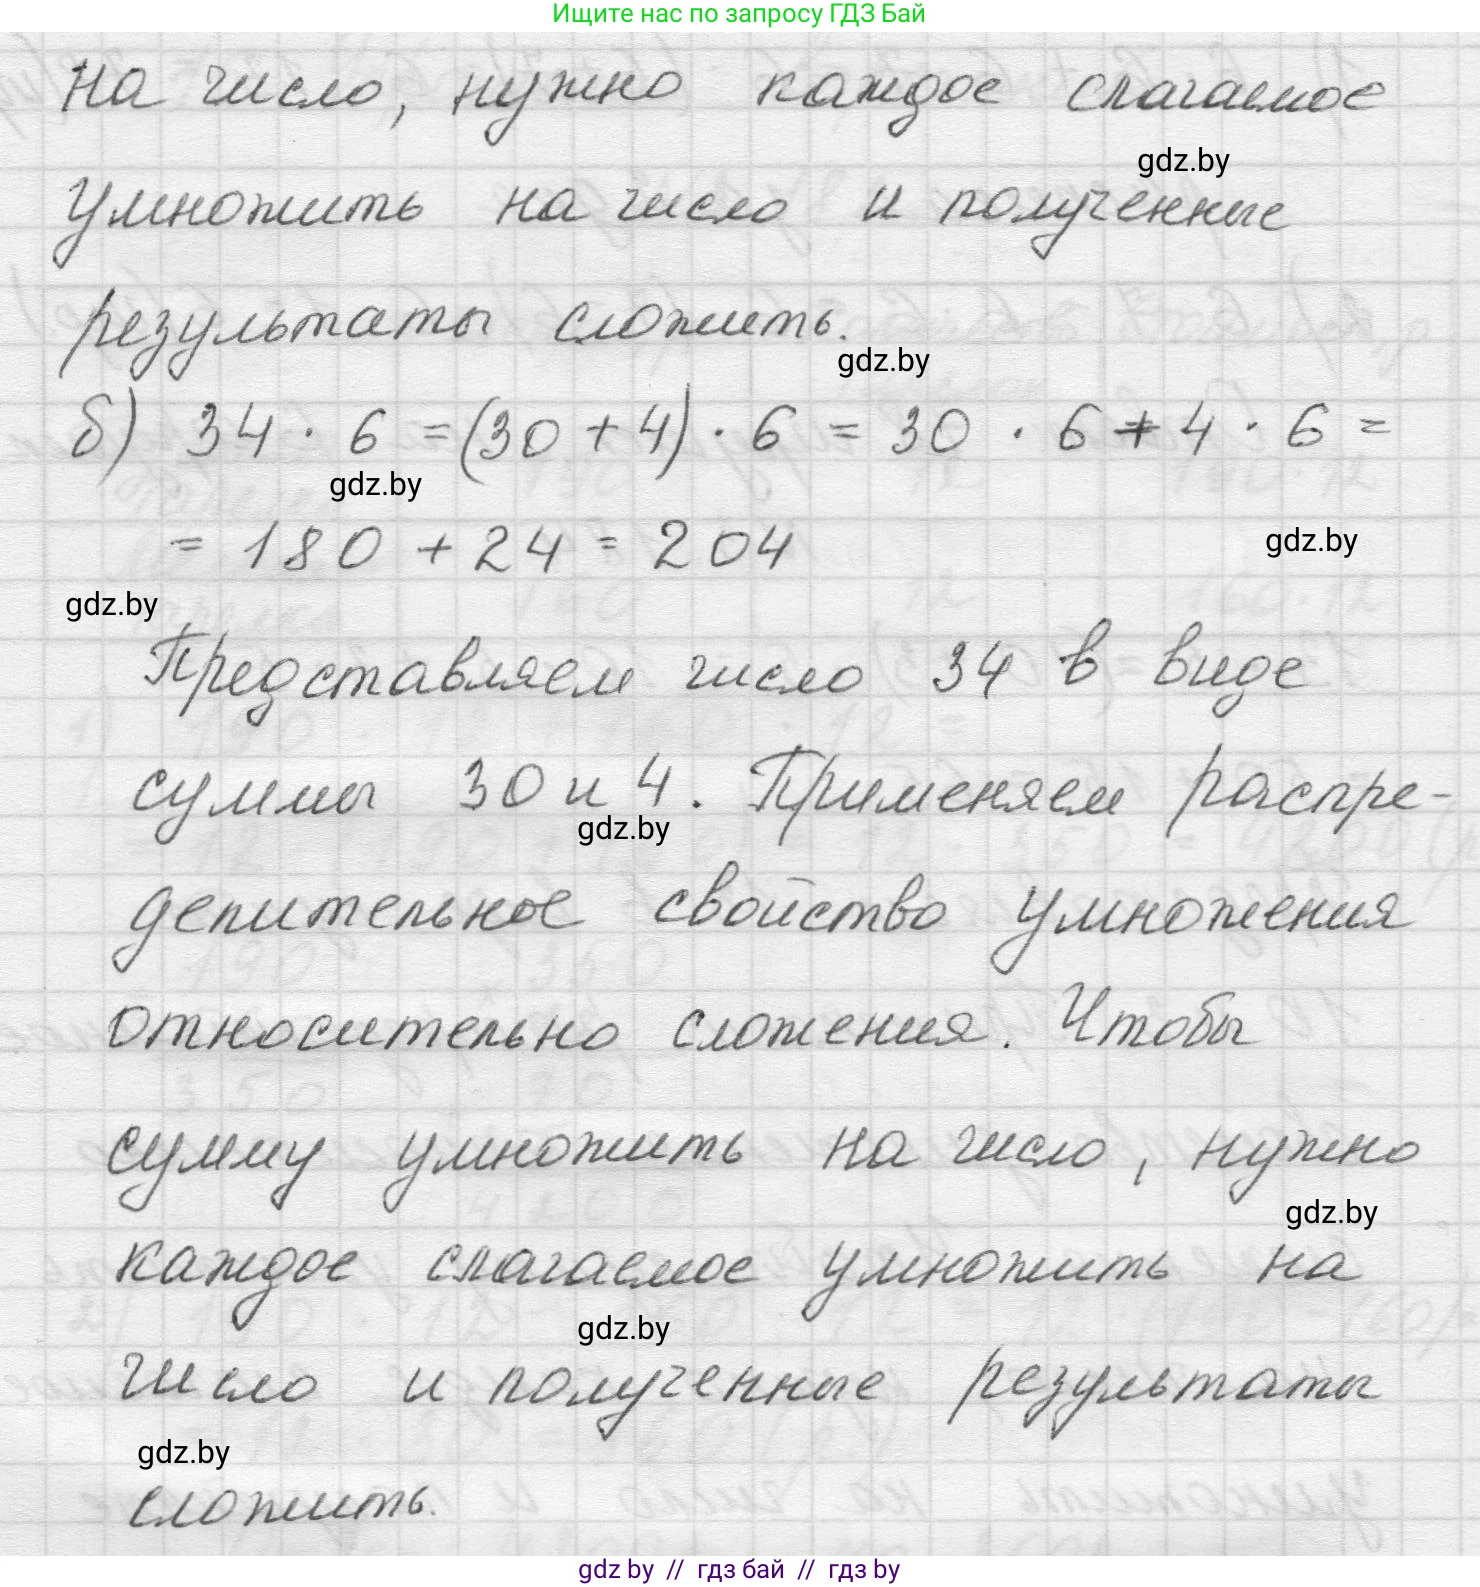 Ищите нас по запросу ГДЗ Бай
на число, нужно каждое слагаемое
gdz.by
умножить на число и полученные
результаты сложить.
gdz.by
б) 34 · 6 = (30 + 4) · 6 = 30 · 6 + 4 · 6 =
gdz.by
= 180 + 24 = 204
gdz.by
gdz.by
Представляем число 34 в виде
суммы 30 и 4. Применяем распре-
gdz.by
делительное свойство умножения
относительно сложения. Чтобы
сумму умножить на число, нужно
gdz.by
каждое слагаемое умножить на
gdz.by
число и полученные результаты
gdz.by
сложить.
gdz by // гдз бай // гдз by